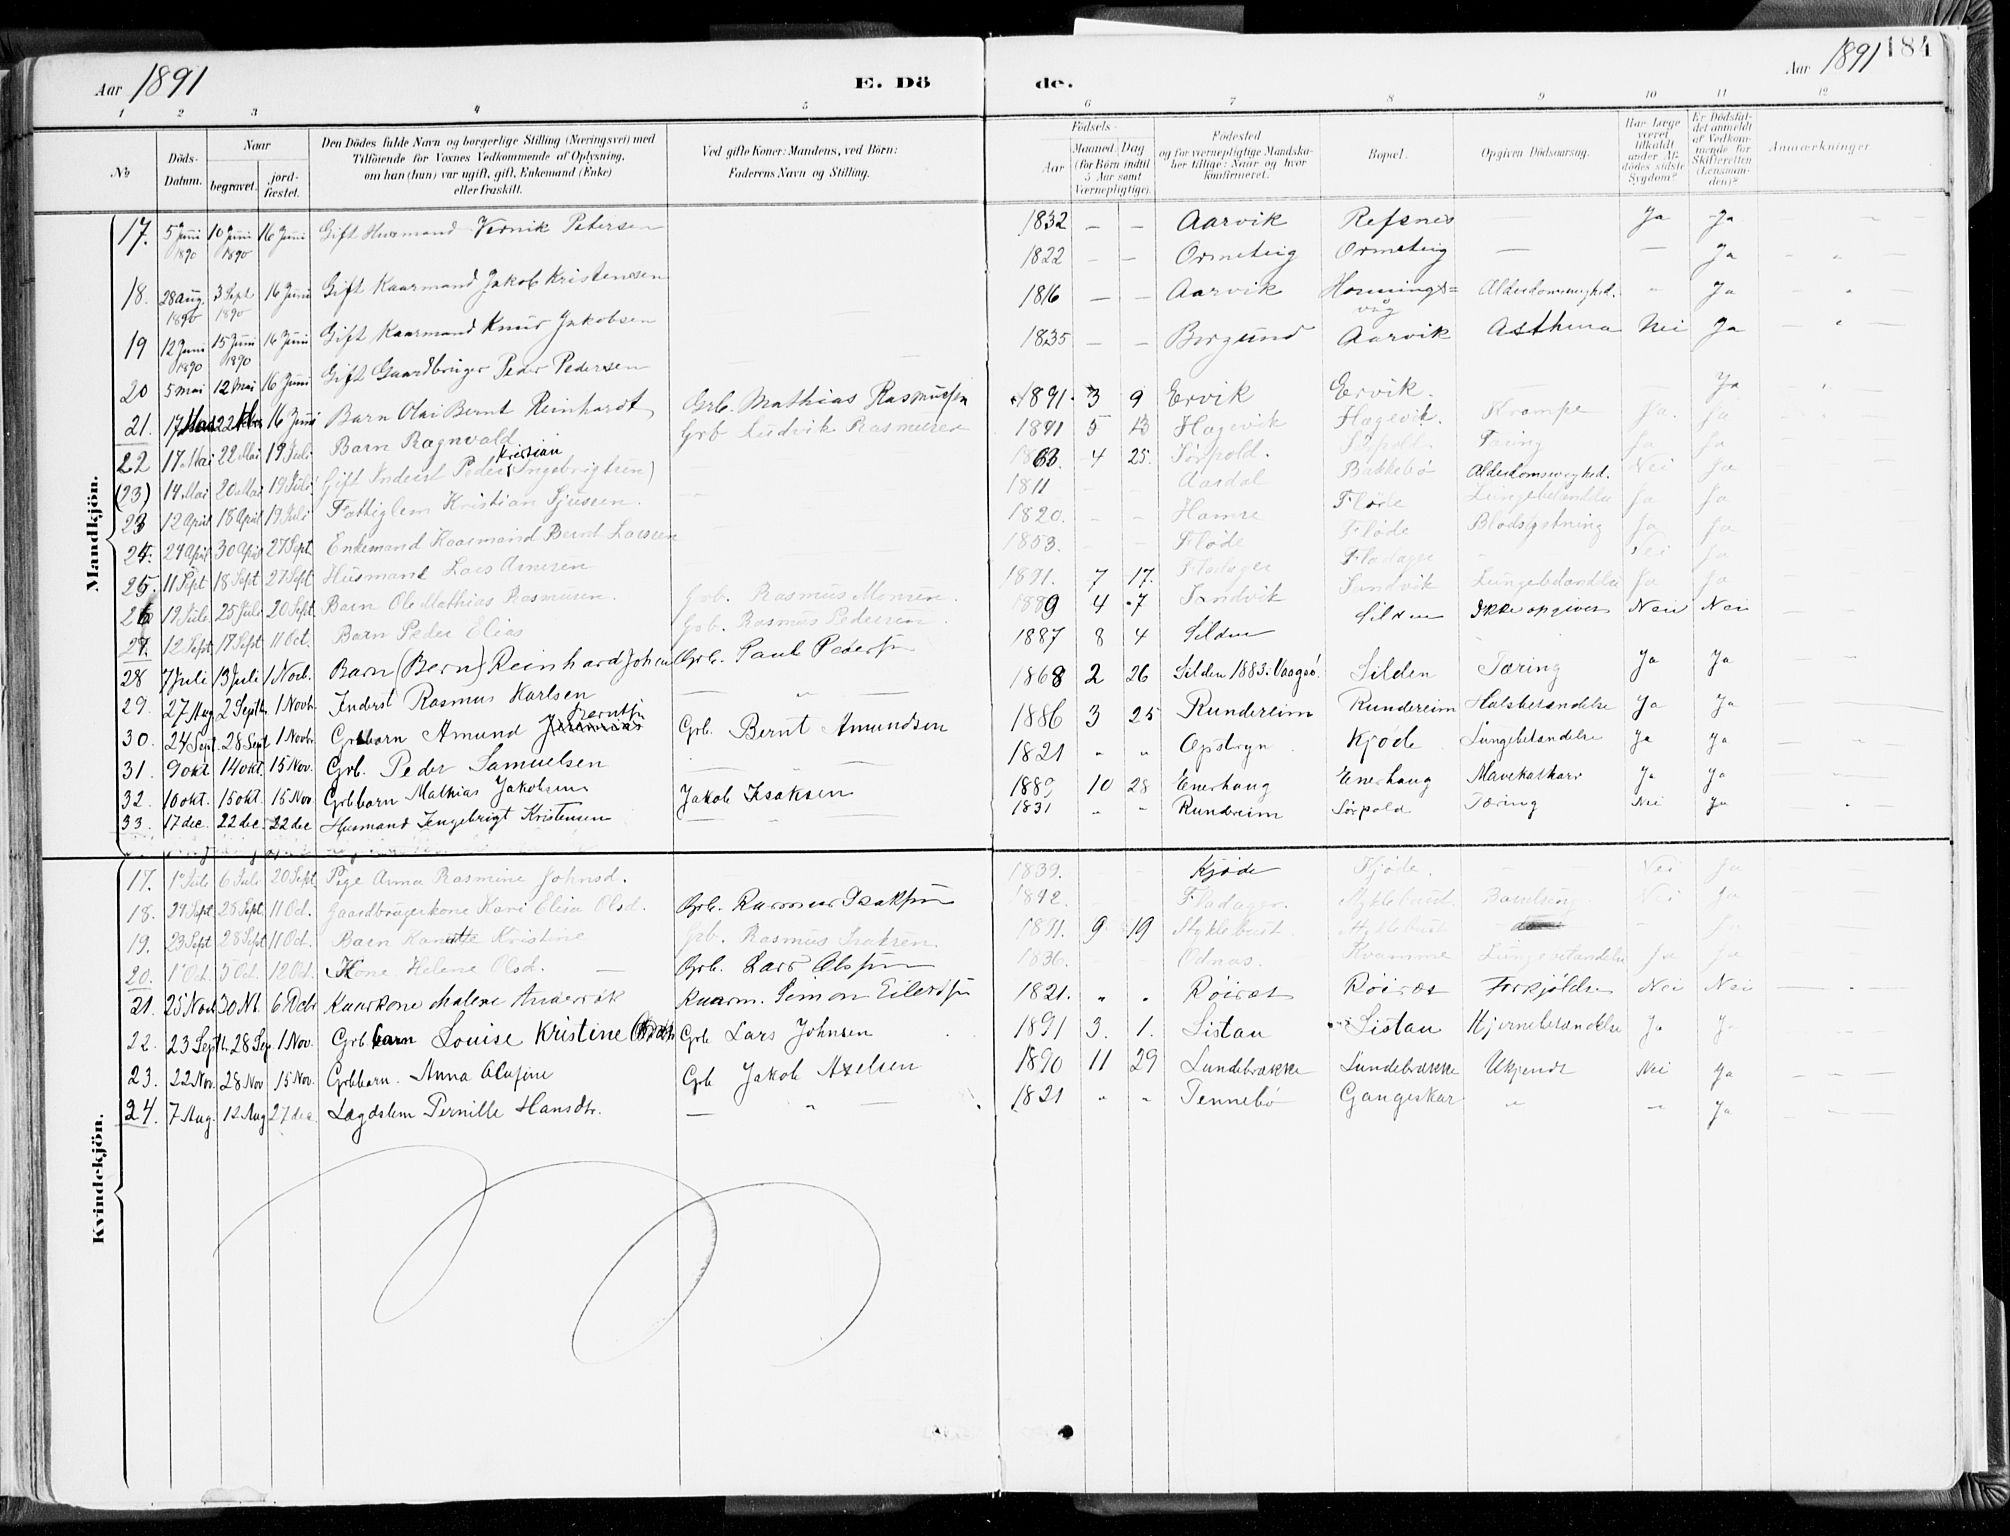 Aar 1891 E. Dö de. Aar 1891 184
1 2 3 4 5 6 7 8 9 10 11 12
№ Döds-Datum. Naar begravet. jord-fæstet. Den Dödes fulde Navn og borgerlige Stilling (Næringsvei) med Tilföiende for Voxnes Vedkommende af Oplysning, om han (hun) var ugift, gift, Enkemand (Enke) eller fraskilt. Ved gifte Koner: Mandens, ved Börn: Faderens Navn og Stilling. Födsels- Aar Maaned. Dag (for Börn indtil 5 Aar samt Værnepligtige). Födested og for værnepligtige Mandskaber tillige: Naar og hvor konfirmeret. Bopæl. Opgiven Dödsaarsag. Har Læge været tilkaldt under Afdödes sidste Sygdom? Er Dödsfaldet anmeldt af Vedkommende for Skifteretten (Lensmanden)? Anmærkninger
Mandkjön.
17. 5 Juni 1890 10 Juni 1890 16 Juni Gift Husmand Petersen 1832 — — Aarvik Refsnes Ja Ja
18. 28 Aug. 1890 3 Sept 1890 16 Juni Gift Kaarmand Jakob Kristensen 1822 — — Ormeteig Ormeteig — — Ja
19 12 Juni 1890 15 Juni 1890 16 Juni Gift Kaarmand Knud Jakobsen 1816 — — Aarvik Honningsvåg Alderdomssvaghed. " Ja
20 5 Mai 12 Mai 16 Juni Gift Gaardbruger Peder Pedersen 1835 — — Borgund Aarvik Asthma Nei Ja
21. 17 22 16 Juni Barn Olai Bernt Reinhardt Grb. Mathias Rasmussen 1891. 3 9 Ervik Ervik. — — Ja
22 17 Mai 22 Mai 19 Juli Barn Ragnvald Grb Ludvik Rasmusen 1891 5 13 Hagevik Hagevik. Krampe Ja. Ja
(23) 14 Mai 20 Mai 19 Juli Gift Inderst Peder Kristian Ingebrigtsen) 1863. 4 25. Sørpold. Sørpold Tæring Ja Ja
23 12 April 18 April 19 Juli Fattiglem Kristian Sjursen. 1811 Aardal Bakkebø Alderdomssvaghed. Nei Ja
24. 24 April 30 April 27 Sept. Enkemand Kaarmand Bernt Larsen 1820. Hamre Fløde Lungebetændelse Ja Ja
25. 11 Sept 18 Sept 27 Sept Husmand Lars Arnesen 1853. Fløde Fløde Blodstyrtning Ja Ja
26 19 Juli 25 Juli 20 Sept. Barn Ole Mathias Rasmusen. Grb. Rasmus Monsen. 1891. 7 17. Fladager Fladager Nei Ja
27. 12 Sept 17 Sept 11 Oct. Barn Peder Elias Grb. Rasmus Pedersen. 1889 4 7 Sandvik Sandvik Lungebetændelse Ja Ja
28 7 Juli 13 Juli 1 Novb. Barn (Bern) Reinhard Johan Grb. Paul Pedersen 1887 8 4 Silden Silden Ikke opgiven Nei Nei
29. 27 Aug 2 Septb. 1 Novb. Inderst Rasmus Karlsen — " — 1868 2 26 Silden 1883: Vaagsø. Silden Tæring Ja Ja
30. 24 Sept. 28 Sept 1 Novb. Grbbarn Amund Berntsen Grb. Bernt Amundsen 1886 3 25 Rundereim Rundereim Halsbetændelse Ja Ja
31. 9 okt 14 okt. 15 Nov. Grb. Peder Samuelsen — " — 1821 " " Opstryn Kjøde Lungebetændelse Ja Ja
32. 10 okt. 15 okt. 15 Nov Grbbarn Mathias Jakobsen Jakob Isaksen 1889 10 28 Enerhaug Enerhaug Mavekatharr Ja Ja
33. 17 dec. 22 dec. 22 dec Husmand Ingebrigt Kristensen — " — 1831 " " Rundreim Sørpold Tæring Nei Ja
Kvindekjön.
17. 1 Juli 6 Juli 20 Sept. Pige Anna Rasmine Johnsd. 1839. Kjøde Kjøde. — Nei Ja
18. 24 Sept. 28 Sept. 11 Oct. Gaardbrugerkone Kari Elisa Olsd. Grb. Rasmus Isaksen 1842. Fladager. Myklebust. Barnseng Nei Ja
19. 23 Sept 28 Sept 11 Oct. Barn Kanutte Kristine Grb. Rasmus Isaksen. 1891. 9 19 Myklebust. Myklebust — Ja
20. 1 Oct. 5 Oct. 12 Oct. Kone Helene Olsd. — Grb. Lars Olsen 1836. Odnæs. Kvamme Lungebetændelse Ja Ja
21. 25 Novb 30 Nb. 6 Decbr Kaarkone Malene Andersdt Kaarm. Simon Eilertsen 1821. " " Røiset Røiset Forkjølelse Nei Nei
22. 23 Septb. 28 Sep. 1 Nov. Grbbarn Louise Kristine Grb Lars Johnsen 1891 3. 1. Listau Listau Hjernebetændelse Ja Ja
23. 22 Nov. 28 Nov 15 Nov. Grbbarn. Anna Olufine Grb Jakob Axelsen 1890 11 29 Lundebrække Lundebrække Ukjendt Nei Ja
24. 7 Aug. 12 Aug 27 dec Lægdslem Pernille Hansdtr. — " — 1821 " " Tennebø Gangeskar " " Ja